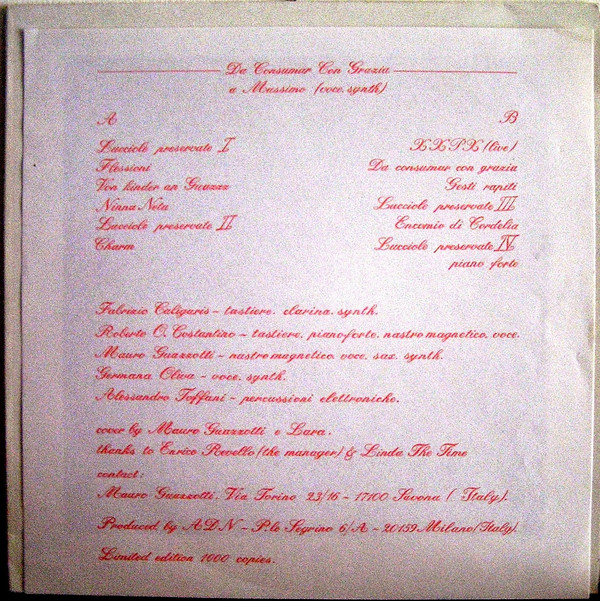 Da Consumar Con Grazia
a Massimo (voce, synth)
A
Lucciole preservate I
Flessioni
Von kinder an Guazzz
Ninna Neta
Lucciole preservate II
Charm
B
XXPX (live)
Da consumar con grazia
Gesti rapiti
Lucciole preservate III
Encomio di Cordelia
Lucciole preservate IV
piano forte
Fabrizio Caligaris - tastiere, clarina, synth.
Roberto O. Costantino - tastiere, piano-forte, nastro magnetico, voce.
Mauro Guazzotti - nastro magnetico, voce, sax, synth.
Germana Oliva - voce, synth.
Alessandro Toffani - percussioni elettroniche.
cover by Mauro Guazzotti e Lara.
thanks to Enrico Revello (the manager) & Linda The Time
contact:
Mauro Guazzotti. Via Torino 23/16 - 17100 Savona (Italy).
Produced by ADN - P.le Segrino 6/A - 20159 Milano (Italy).
Limited edition 1000 copies.